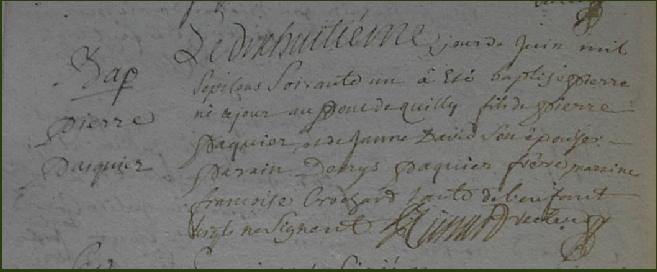 Bap
pierre
paquier
Le dixhuitiéme jour de Juin mil
Sept cens Soixante un a Eté baptisé pierre
né ce jour au pont de quilly fils de pierre
paquier, et de Janne David Son épouse
parain Denys paquier frére maraine
francoise Crochard tante de l'enfant
lesquels ne Signent recteur